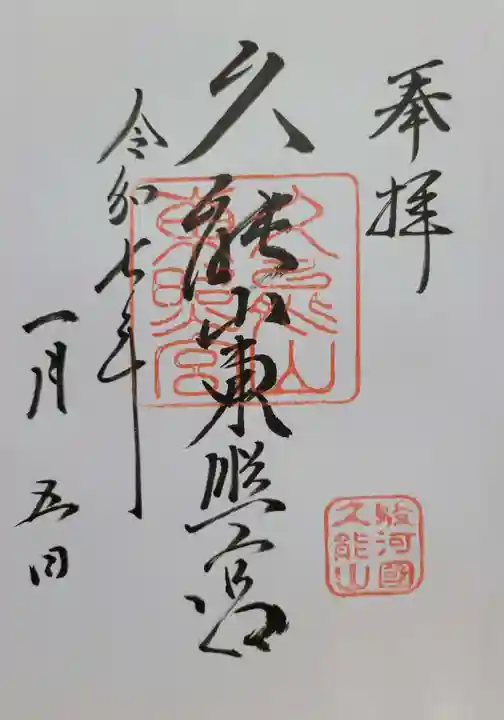 奉拝
久能山東照宮
令和七年
一月五日
久能山
東照宮
駿河國
久能山